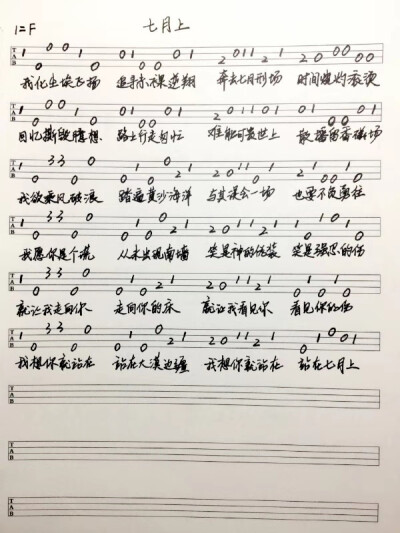 1=F 七月上
TAB
我化尘埃飞扬 追寻赤裸逆翔 奔去七月刑场 时间烧灼滚烫
TAB
回忆撕毁臆想 路上行走匆忙 难能可贵世上 散播留香磁场
TAB
我欲乘风破浪 踏遍黄沙海洋 与其误会一场 也要不负勇往
TAB
我愿你是个谎 从未出现南墙 笑是神的伪装 笑是强忍的伤
TAB
就让我走向你 走向你的床 就让我看见你 看见你的伤
TAB
我想你就站在 站在大漠边疆 我想你就站在 站在七月上
TAB
TAB
TAB